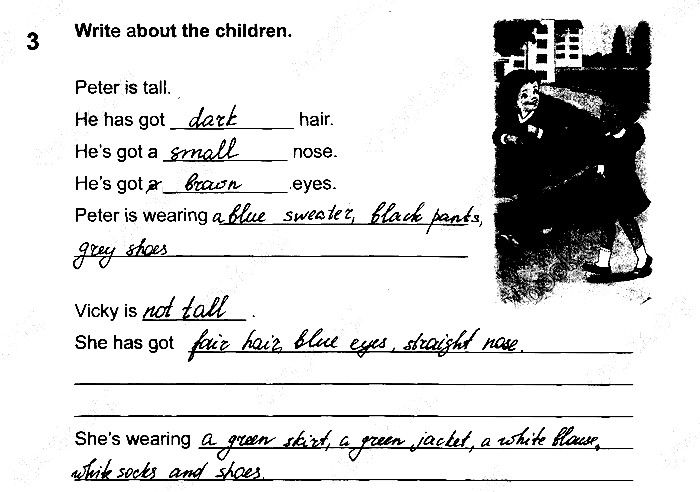 3 Write about the children.
Peter is tall.
He has got dark hair.
He's got a small nose.
He's got a brown eyes.
Peter is wearing a blue sweater, black pants,
grey shoes
Vicky is not tall.
She has got fair hair, blue eyes, straight nose.
She's wearing a green skirt, a green jacket, a white blouse,
white socks and shoes.